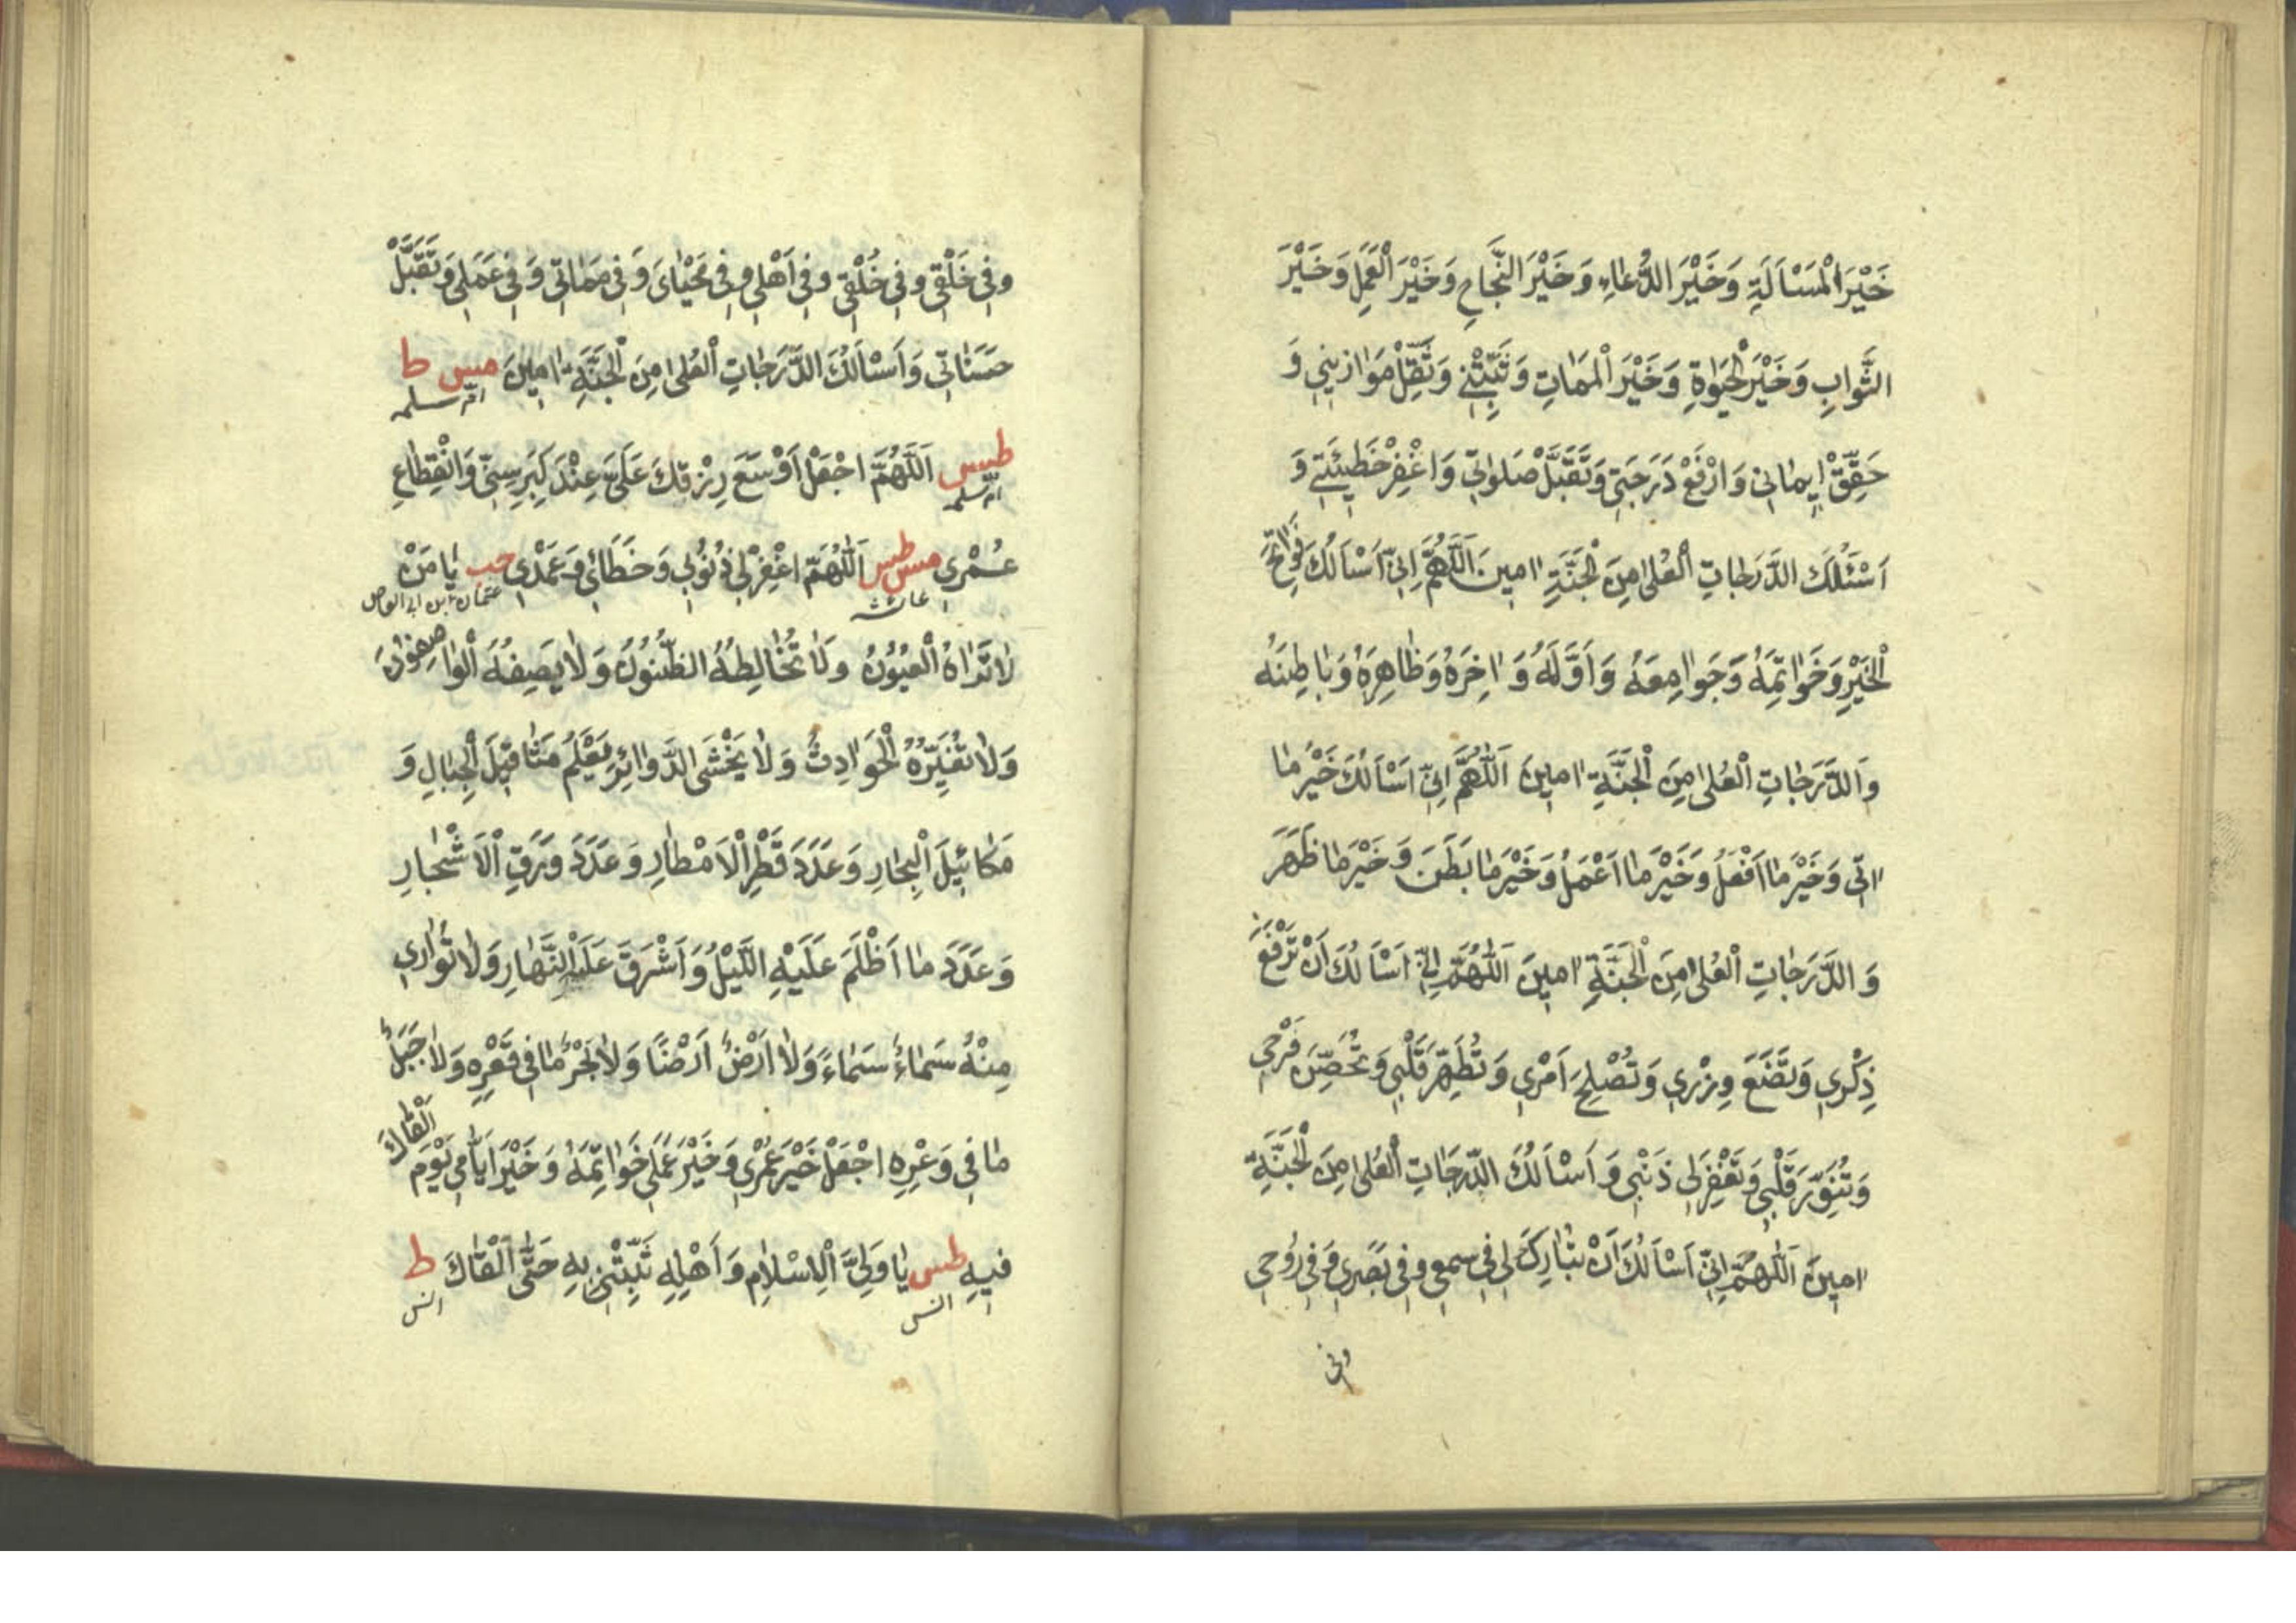 خَيْرَ الْمَسْاَلَةِ وَخَيْرَ الدُّعَاءِ وَخَيْرَ النَّجَاحِ وَخَيْرَ الْعَمَلِ وَخَيْرَ
الثَّوَابِ وَخَيْرَ الْحَيٰوةِ وَخَيْرَ الْمَمَاتِ وَثَبِّتْنِي وَثَقِّلْ مَوَازِينِي وَ
حَقِّقْ اِيمَانِي وَارْفَعْ دَرَجَتِي وَتَقَبَّلْ صَلٰوتِي وَاغْفِرْ خَطِيْئَتِي وَ
اَسْئَلُكَ الدَّرَجَاتِ الْعُلٰى مِنَ الْجَنَّةِ اٰمِينَ اَللّٰهُمَّ اِنِّي اَسْاَلُكَ فَوَاتِحَ
الْخَيْرِ وَخَوَاتِمَهُ وَجَوَامِعَهُ وَاَوَّلَهُ وَاٰخِرَهُ وَظَاهِرَهُ وَبَاطِنَهُ
وَالدَّرَجَاتِ الْعُلٰى مِنَ الْجَنَّةِ اٰمِينَ اَللّٰهُمَّ اِنِّي اَسْاَلُكَ خَيْرَ مَا
اٰتِي وَخَيْرَ مَا اَفْعَلُ وَخَيْرَ مَا اَعْمَلُ وَخَيْرَ مَا بَطَنَ وَخَيْرَ مَا ظَهَرَ
وَالدَّرَجَاتِ الْعُلٰى مِنَ الْجَنَّةِ اٰمِينَ اَللّٰهُمَّ اِنِّي اَسْاَلُكَ اَنْ تَرْفَعَ
ذِكْرِي وَتَضَعَ وِزْرِي وَتُصْلِحَ اَمْرِي وَتُطَهِّرَ قَلْبِي وَتُحَصِّنَ فَرْجِي
وَتُنَوِّرَ قَلْبِي وَتَغْفِرَ لِي ذَنْبِي وَاَسْاَلُكَ الدَّرَجَاتِ الْعُلٰى مِنَ الْجَنَّةِ
اٰمِينَ اَللّٰهُمَّ اِنِّي اَسْاَلُكَ اَنْ تُبَارِكَ لِي فِي سَمْعِي وَفِي بَصَرِي وَفِي رُوحِي
وفي
وَفِي خَلْقِي وَفِي خُلُقِي وَفِي اَهْلِي وَفِي مَحْيَايَ وَفِي مَمَاتِي وَفِي عَمَلِي وَتَقَبَّلْ
حَسَنَاتِي وَاَسْاَلُكَ الدَّرَجَاتِ الْعُلٰى مِنَ الْجَنَّةِ اٰمِينَ مس ط
ام سلمه
طس اَللّٰهُمَّ اجْعَلْ اَوْسَعَ رِزْقِكَ عَلَيَّ عِنْدَ كِبَرِ سِنِّي وَانْقِطَاعِ
ام سلمه
عُمْرِي مس طس اَللّٰهُمَّ اغْفِرْ لِي ذُنُوبِي وَخَطَائِي وَعَمْدِي حب يَا مَنْ
عائشه عثمان ابن ابى العاص
لَا تَرَاهُ الْعُيُونُ وَلَا تُخَالِطُهُ الظُّنُونُ وَلَا يَصِفُهُ الْوَاصِفُونَ
وَلَا تُغَيِّرُهُ الْحَوَادِثُ وَلَا يَخْشَى الدَّوَائِرَ يَعْلَمُ مَثَاقِيلَ الْجِبَالِ وَ
مَكَائِيلَ الْبِحَارِ وَعَدَدَ قَطْرِ الْاَمْطَارِ وَعَدَدَ وَرَقِ الْاَشْجَارِ
وَعَدَدَ مَا اَظْلَمَ عَلَيْهِ اللَّيْلُ وَاَشْرَقَ عَلَيْهِ النَّهَارِ وَلَا تُوَارِي
مِنْهُ سَمَاءٌ سَمَاءً وَلَا اَرْضٌ اَرْضًا وَلَا بَحْرٌ مَا فِي قَعْرِهِ وَلَا جَبَلٌ
مَا فِي وَعْرِهِ اجْعَلْ خَيْرَ عُمْرِي وَخَيْرَ عَمَلِي خَوَاتِمَهُ وَخَيْرَ اَيَّامِي يَوْمَ اَلْقَاكَ
فِيهِ طس يَا وَلِيَّ الْاِسْلَامِ وَاَهْلِهِ ثَبِّتْنِي بِهِ حَتَّى اَلْقَاكَ ط
انس انس